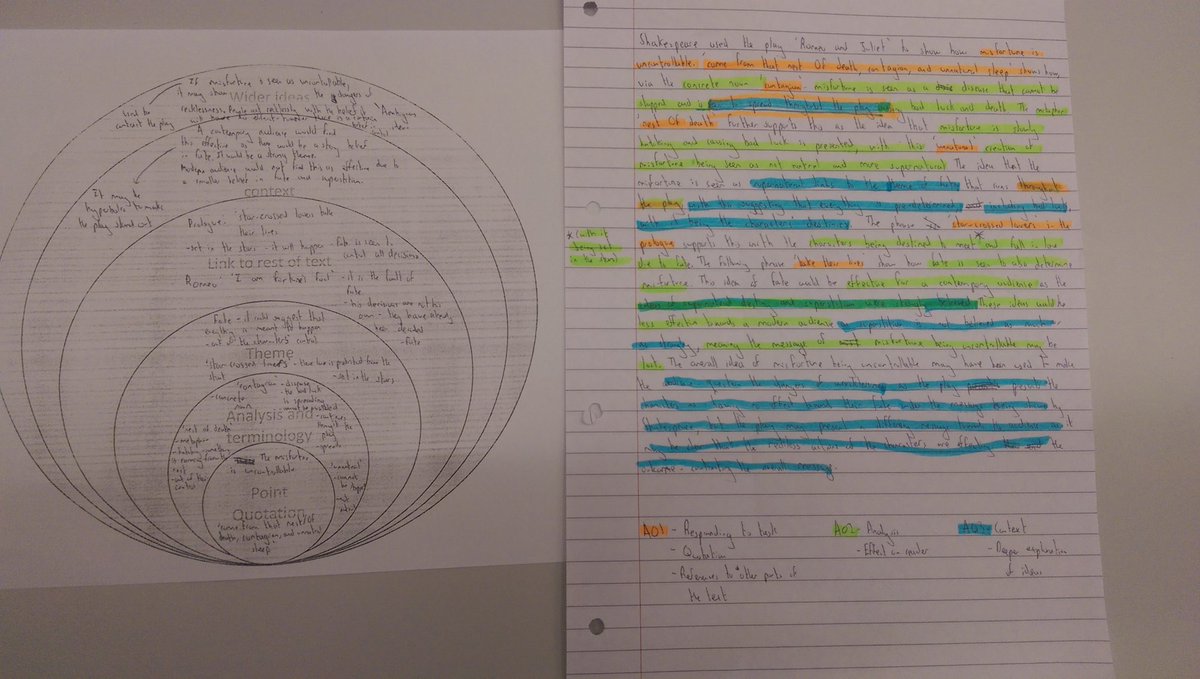 If misfortune is seen as uncontrollable,
it may show the dangers of
Wider ideas
recklessness.
used to
contrast the play
A contemporary audience would find
this effective as there would be a strong belief
in fate. It would be a strong theme.
Modern audience would not find this as effective due to
a smaller belief in fate and superstition.
context
It may be
hyperbolic to make
the play stand out
Prologue: 'star-crossed lovers take
their lives'
-set in the stars - it will happen - fate is seen to
control all decisions
Link to rest of text
Romeo 'I am fortunes fool' - it is the fault of
fate
- his decisions are not his
own - they have already
been decided
- fate
Fate - it could suggest that
everything is meant to happen
- out of the characters' control
Theme
'star-crossed lovers' - their love is predicted from the
start - set in the stars
'contagion' - disease
- concrete noun
- the bad luck
is spreading
cannot be stopped
Analysis and
terminology
'nest of death'
- metaphor
- out of their
control
'unnatural'
- cannot
be
- not
natural
The misfortune
is uncontrollable
Point
Quotation
'come from that nest of
death, contagion, and unnatural
sleep'
Shakespeare used the play 'Romeo and Juliet' to show how misfortune is
uncontrollable. 'come from that nest Of death, contagion, and unnatural sleep' shows how,
via the concrete noun 'contagion' - misfortune is seen as a disease that cannot be
stopped and is to spread throughout the play bad luck and death. The metaphor
'nest Of death' further supports this as the idea that misfortune is slowly
hatching and causing bad luck is presented, with this 'unnatural' creation of
misfortune being seen as not natural and more supernatural. The idea that the
misfortune is seen as supernatural links to the theme of fate that runs throughout
the play, with this suggesting that everything is pre-determined including bad luck,
with it being the characters' destinies. The phrase 'star-crossed lovers' in the
prologue supports this with the characters being destined to meet* and fall in love
* (with it
being set
in the stars)
due to fate. The following phrase 'take their lives' show how fate is seen to also determine
misfortune. This idea of fate would be effective for a contemporary audience as the
ideas of supernatural deity and superstition were largely believed. These ideas would be
less effective towards a modern audience as superstition is not believed as much
as strongly, meaning the message of misfortune being uncontrollable may be
lost. The overall idea of misfortune being uncontrollable may have been used to make
the audience question the dangers of recklessness, as the play presents the
characters as having no effect towards their fate under the message being shown by
Shakespeare, but the play may present a different message toward the audience as it
may be clear that the reckless actions of the characters are effecting the
outcome - contrasting the overall message.
AO1 - Responding to task
- Quotation
- References to other parts of
the text
AO2 - Analysis
- Effect on reader
AO3 - Context
- Deeper explanation
of ideas